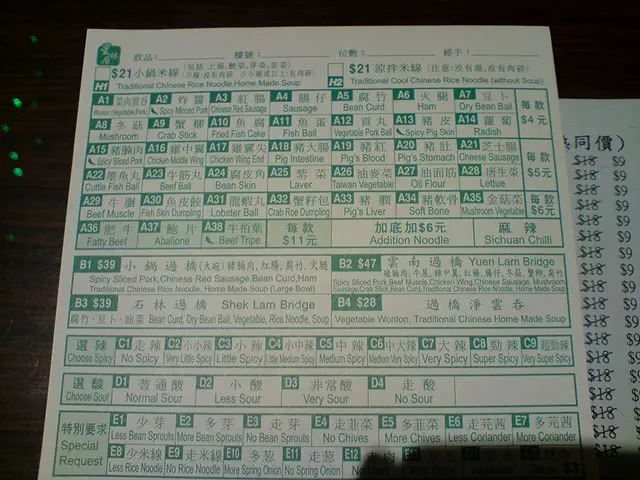 飲品: 檯號: 位數: 經手:
$21 小鍋米線
Traditional Chinese Rice Noodle, Home Made Soup
H1
$21 涼拌米線 (注意:沒有湯,沒有肉碎)
Traditional Cool Chinese Rice Noodle (without Soup)
H2
A1 菜肉雲吞 A2 炸醬 A3 紅腸 A4 腸仔 A5 腐竹 A6 火腿 A7 豆卜 每款
Spicy Minced Pork Chinese Red Sausage Sausage Bean Curd Ham Dry Bean Ball $4元
A8 冬菇 A9 蟹柳 A10 魚腐 A11 魚蛋 A12 貢丸 A13 豬皮 A14 蘿蔔
Mushroom Crab Stick Fried Fish Cake Fish Ball Vegetable Pork Ball Spicy Pig Skin Radish
A15 豬腩肉 A16 雞中翼 A17 雞翼尖 A18 豬大腸 A19 豬紅 A20 豬肚 A21 芝士腸 每款
Spicy Sliced Pork Chicken Middle Wing Chicken Wing End Pig Intestine Pig's Blood Pig's Stomach Cheese Sausage $5元
A22 墨魚丸 A23 牛筋丸 A24 腐皮角 A25 紫菜 A26 油麥菜 A27 油面筋 A28 唐生菜
Cuttle Fish Ball Beef Ball Bean Skin Laver Taiwan Vegetable Oil Flour Lettuce
A29 牛脷 A30 魚皮餃 A31 龍蝦丸 A32 蟹籽包 A33 豬膶 A34 豬軟骨 A35 金菇菜 每款
Beef Muscle Fish Skin Dumpling Lobster Ball Crab Roe Dumpling Pig's Liver Soft Bone Mushroom Vegetable $6元
A36 肥牛 A37 鮑片 A38 牛栢葉 每款 加底加$6元 麻辣
Fatty Beef Abalione Beef Tripe $11元 Addition Noodle Sichuan Chilli
B1 $39 小鍋過橋 (大碗) 豬腩肉,紅腸,腐竹,火腿
Spicy Sliced Pork, Chinese Red Sausage, Bean Curd, Ham
Traditional Chinese Rice Noodle, Home Made Soup (Large Bowl)
B2 $47 雲南過橋 Yuen Lam Bridge
Spicy Sliced Pork, Beef Muscle, Chicken Wing, Chinese Sausage, Mushroom
Sausage, Crab Stick, Bean Curd, Traditional Chinese Rice Noodle, Home Made Soup
B3 $39 石林過橋 Shek Lam Bridge
腐竹、豆卜、油菜 Bean Curd, Dry Bean Ball, Vegetable, Rice Noodle, Soup
B4 $28 過橋淨雲吞
Vegetable Wonton, Traditional Chinese Home Made Soup
選辣 C1 走辣 C2 小小辣 C3 小辣 C4 小中辣 C5 中辣 C6 中大辣 C7 大辣 C8 勁辣 C9 超勁辣
Choose Spicy No Spicy Very Little Spicy Little Spicy Little Medium Spicy Medium Spicy Medium Very Spicy Very Spicy Super Spicy Very Super Spicy
選酸 D1 普通酸 D2 小酸 D3 非常酸 D4 走酸
Choose Sour Normal Sour Less Sour Very Sour No Sour
特別要求 E1 少芽 E2 多芽 E3 走芽 E4 走韮菜 E5 多韮菜 E6 走芫茜 E7 多芫茜
Special Request Less Bean Sprouts More Bean Sprouts No Bean Sprouts No Chives More Chives Less Coriander More Coriander
E8 少米線 E9 走米線 E10 多葱 E11 走葱 E12 走肉
Less Rice Noodle No Rice Noodle More Spring Onion No Spring Onion
同價)
$18 $9
$18 $9
$18 $9
$18 $9
$18 $9
$18 $9
$18 $9
$18 $9
$18 $9
$18 $9
$18 $9
$18 $9
$18 $9
$18 $9